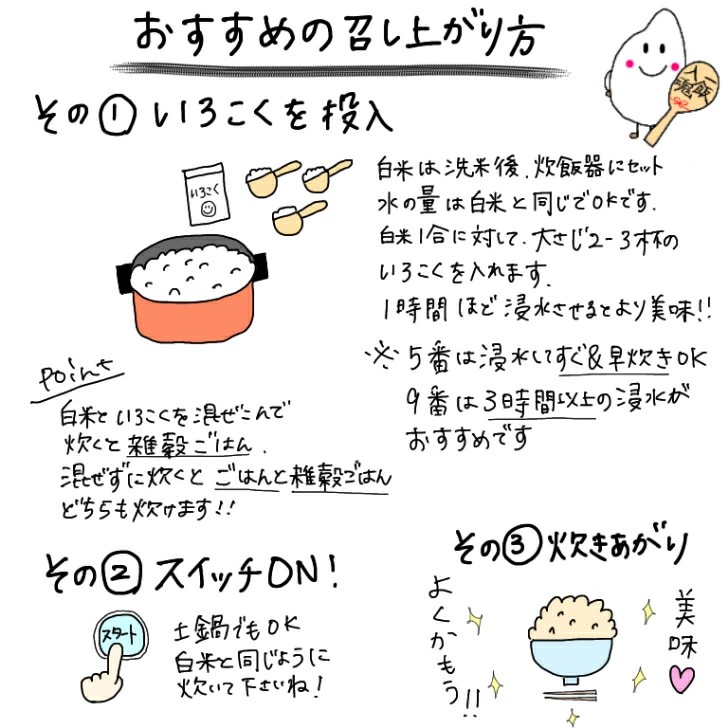 おすすめの召し上がり方
一飯魂
その① いろこくを投入
いろこく
白米は洗米後、炊飯器にセット
水の量は白米と同じでOKです。
白米1合に対して、大さじ2-3杯の
いろこくを入れます。
1時間ほど浸水させるとより美味!!
※ 5番は浸水してすぐ&早炊きOK
9番は3時間以上の浸水が
おすすめです
Point
白米といろこくを混ぜこんで
炊くと雑穀ごはん。
混ぜずに炊くとごはんと雑穀ごはん
どちらも炊けます!!
その② スイッチON!
スタート
土鍋でもOK
白米と同じように
炊いて下さいね!
その③ 炊きあがり
よくかもう!!
美味